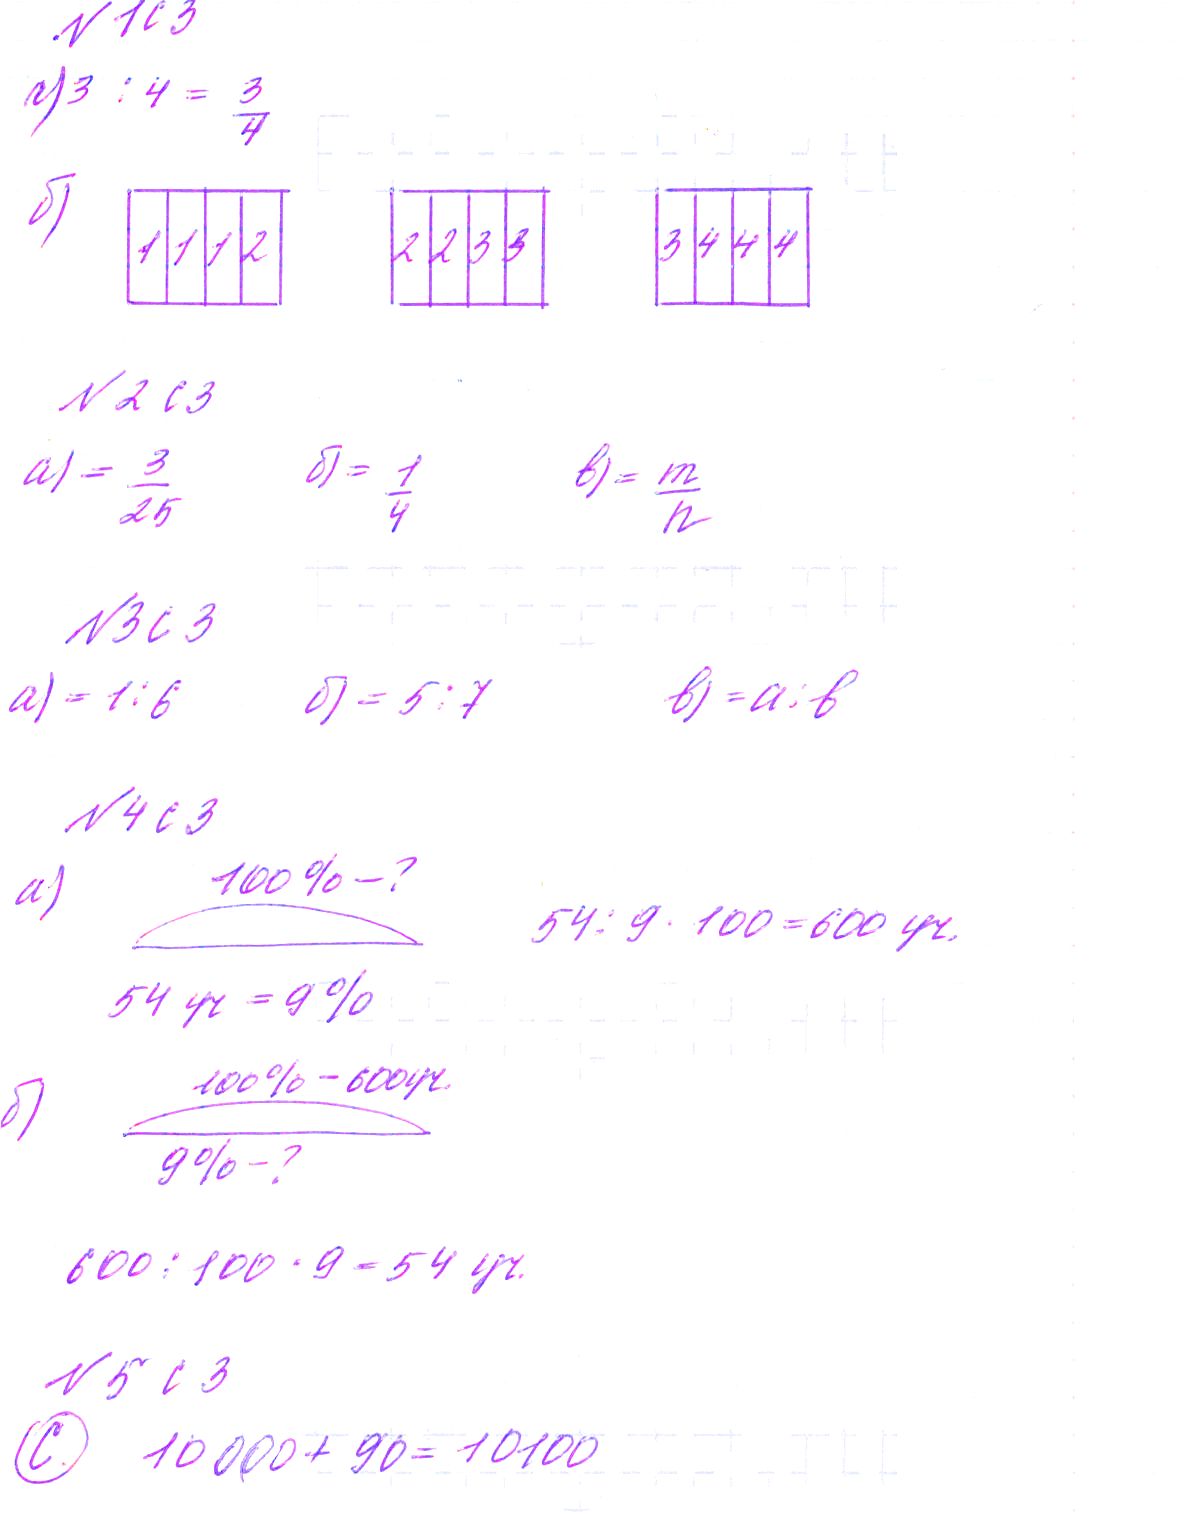 №1 с 3
а) 3 : 4 = 3/4
б) 1 1 1 2 2 2 3 3 3 4 4 4
№2 с 3
а) = 3/25 б) = 1/4 в) = m/n
№3 с 3
а) = 1 : 6 б) = 5 : 7 в) = a : b
№4 с 3
а) 100% – ?
54 : 9 · 100 = 600 уч.
54 уч = 9%
б) 100% – 600 уч.
9% – ?
600 : 100 · 9 = 54 уч.
№5 с 3
С. 10 000 + 90 = 10100